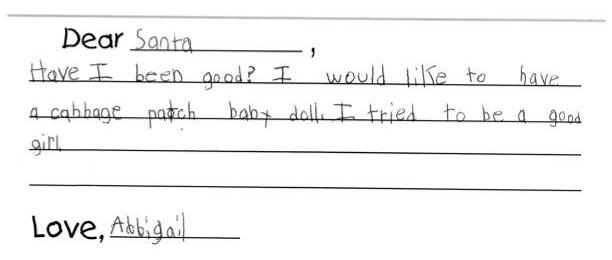 Dear Santa,
Have I been good? I would like to have
a cabbage patch baby doll. I tried to be a good
girl.
Love, Abbigail